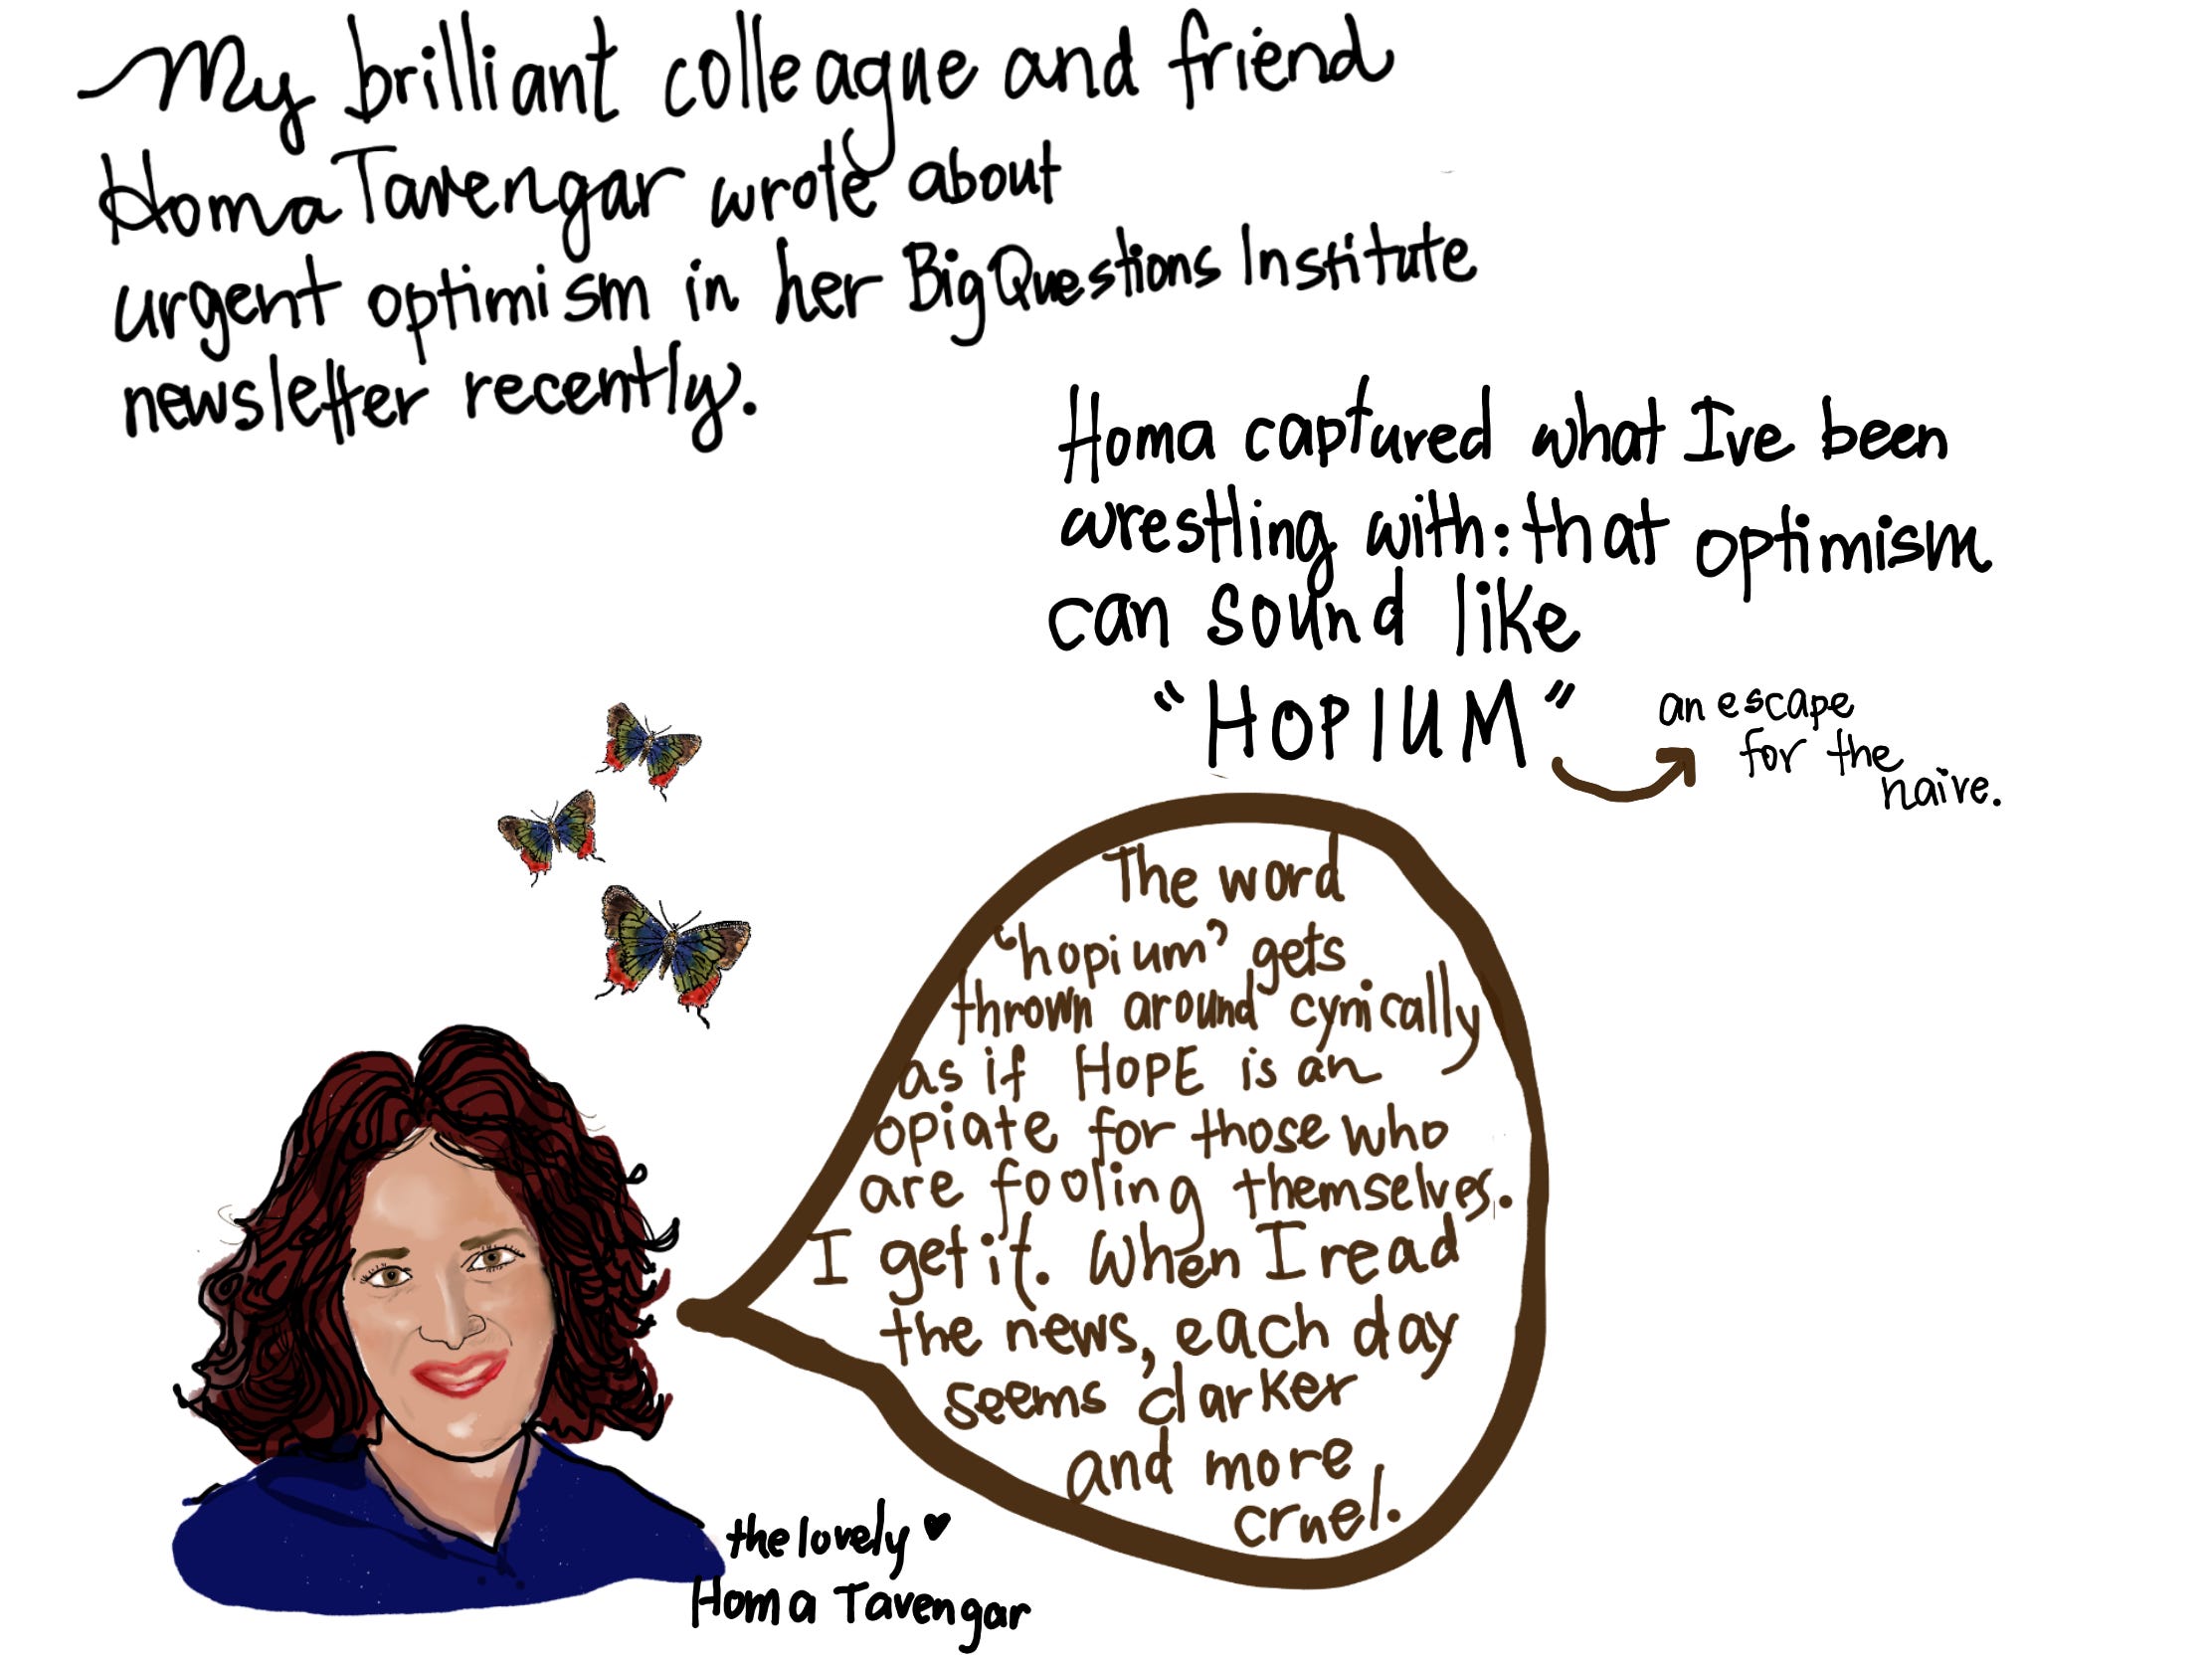 My brilliant colleague and friend
Homa Tavengar wrote about
urgent optimism in her Big Questions Institute
newsletter recently.
Homa captured what Ive been
wrestling with: that optimism
can sound like
"HOPIUM"
an escape
for the
naive.
The word
'hopium' gets
thrown around cynically
as if HOPE is an
opiate for those who
are fooling themselves.
I get it. When I read
the news, each day
seems darker
and more
cruel.
the lovely ♥
Homa Tavengar